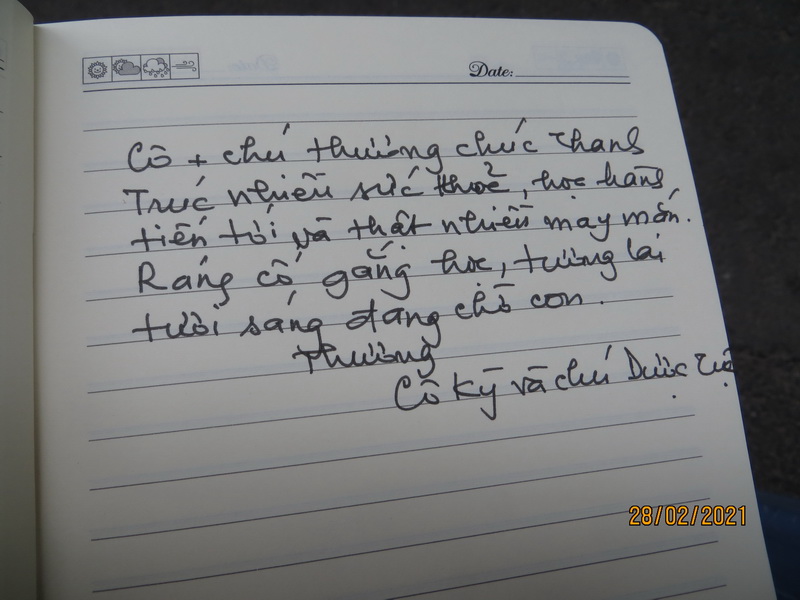 Date:
Cô + chú thương chúc Thanh
Trúc nhiều sức khoẻ, học hành
tiến tới và thật nhiều may mắn.
Ráng cố gắng học, tương lai
tươi sáng đang chờ con.
Thương
Cô Kỳ và chú Dược
28/02/2021